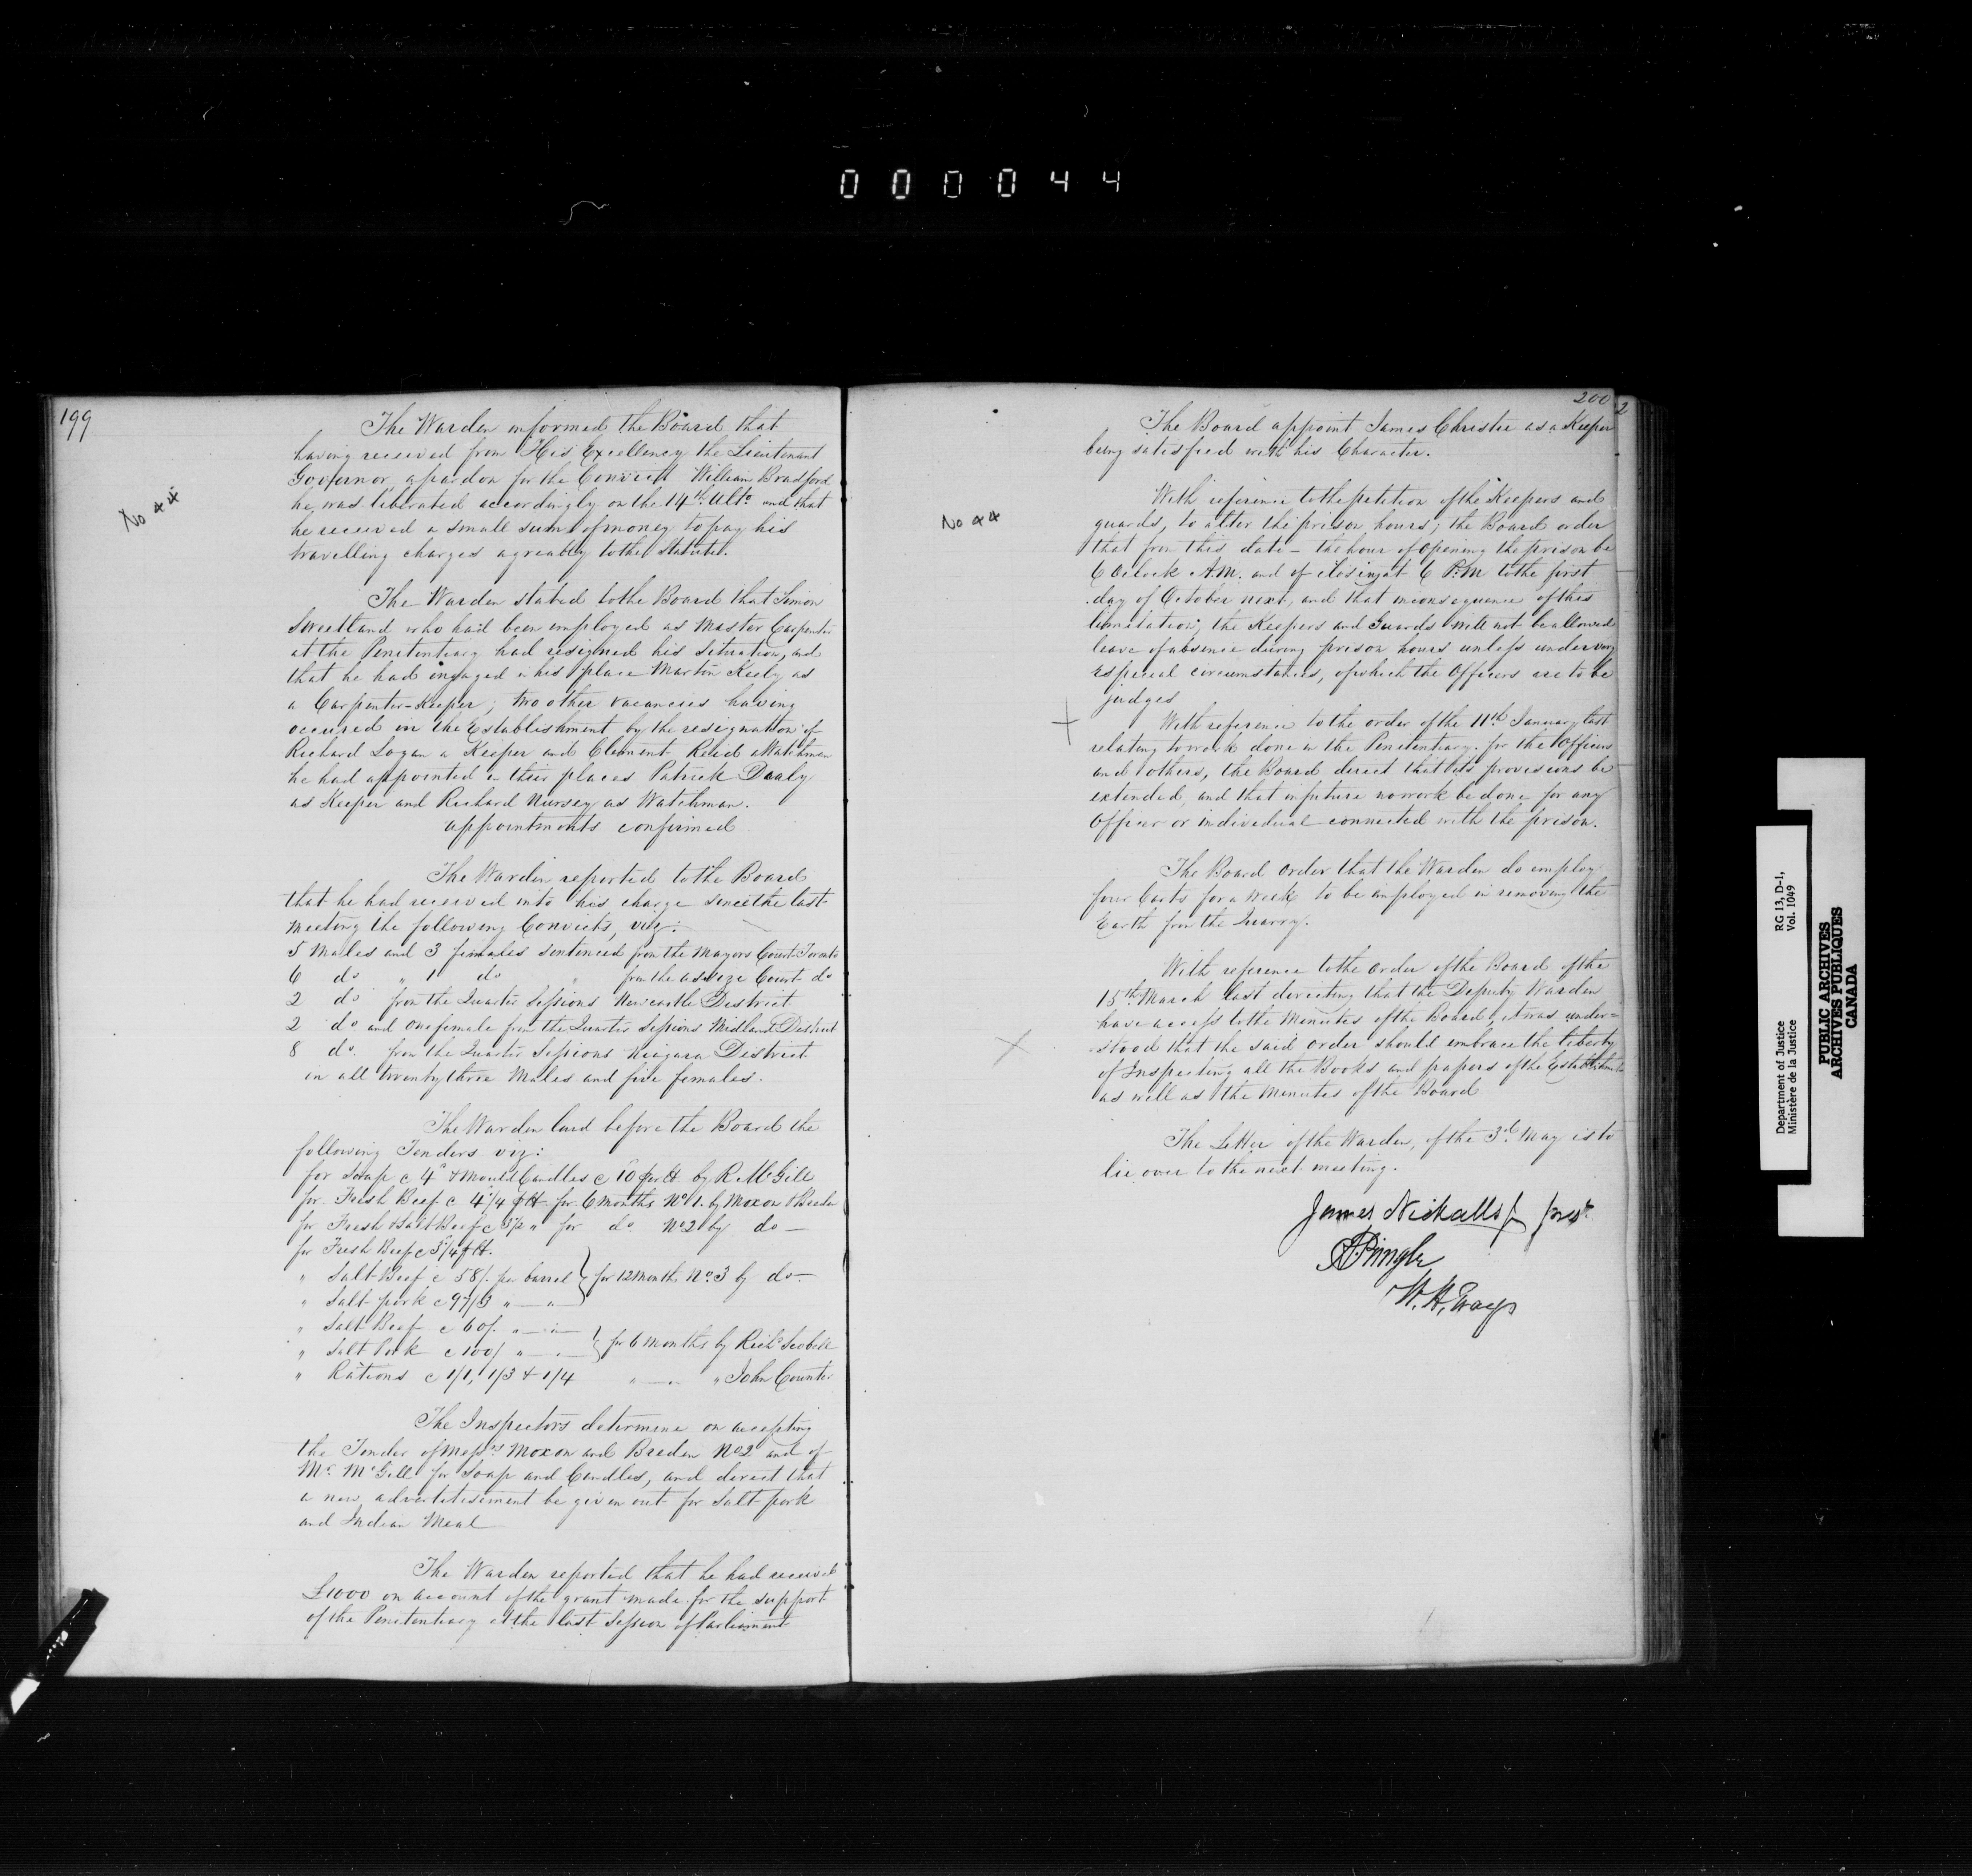 000044
199
No 44
The Warden informed the Board that
having received from His Excellency the Lieutenant
Governor a pardon for the Convict William Bradford
he was liberated accordingly on the 14th Ulto and that
he received a small sum of money to pay his
travelling charges agreably to the Statute.
The Warden stated to the Board that Simon
Sweetland who had been employed as Master Carpenter
at the Penitentiary had resigned his situation, and
that he had engaged in his place Martin Keely as
a Carpenter-Keeper; two other vacancies having
occured in the Establishment by the resignation of
Richard Logan a Keeper and Clement Reid a Watchman
he had appointed in their places Patrick Dealy
as Keeper and Richard Nursey as Watchman.
appointments confirmed
The Warden reported to the Board
that he had received into his charge since the last
meeting the following Convicts, viz:
5 Males and 3 females sentenced from the Mayors Court Toronto
6 do " 1 do " from the assize Court do
2 do from the Quarter Sessions Newcastle District
2 do and One female from the Quarter Sessions Midland District
8 do. from the Quarter Sessions Niagara District
in all twenty three Males and five females.
The Warden laid before the Board the
following Tenders viz:
for Soap c 4d & Mould Candles c 10 per lb by R. McGill
for Fresh Beef c 4 1/4 p lb for 6 months No 1. by Moxon & Breden
for Fresh & Salt Beef c 3 1/2 " for do. No 2 by do —
for Fresh Beef c 3 3/4 p lb.
" Salt Beef c 58/. per barrel } for 12 Months No. 3 by do —
" Salt pork c 97/6 " — "
" Salt Beef c 60/. " — "
" Salt Pork c 100/ " — " } for 6 Months by Richd Scobell
" Rations c 1/1, 1/3 & 1/4 " — " " John Counter
The Inspectors determine on accepting
the Tender of Messrs Moxon and Breden No 2 and of
Mr. McGill for Soap and Candles, and direct that
a new advertitisement be given out for Salt pork
and Indian Meal
The Warden reported that he had received
£1000 on account of the grant made for the support
of the Penitentiary at the last Session of Parliament
200
2
No 44
The Board appoint James Christie as a Keeper
being satisfied with his Character.
With reference to the petition of the Keepers and
guards, to alter the prison hours; the Board order
that from this date - the hour of opening the prison be
6 OClock A.M. and of closing at 6 P.M to the first
day of October next, and that in consequence of this
limitation, the Keepers and Guards will not be allowed
leave of absence during prison hours unless under very
especial circumstances, of which the Officers are to be
judges
With reference to the order of the 11th January last
relating to work done in the Penitentiary for the Officers
and others, the Board direct that its provisions be
extended, and that in future no work be done for any
Officer or individual connected with the prison.
The Board order that the Warden do employ
four Carts for a Week to be employed in removing the
Earth from the Quarry.
With reference to the Order of the Board of the
15th March last directing that the Deputy Warden
have access to the Minutes of the Board, it was under=
=stood that the said order should embrace the liberty
of Inspecting all the Books and papers of the Establishment
as well as the Minutes of the Board
The Letter of the Warden, of the 3d May is to
lie over to the next meeting.
James Nickalls Jr Prest
A Pringle
W. H. Gray
Department of Justice
Ministère de la Justice
RG 13, D-1,
Vol. 1049
PUBLIC ARCHIVES
ARCHIVES PUBLIQUES
CANADA